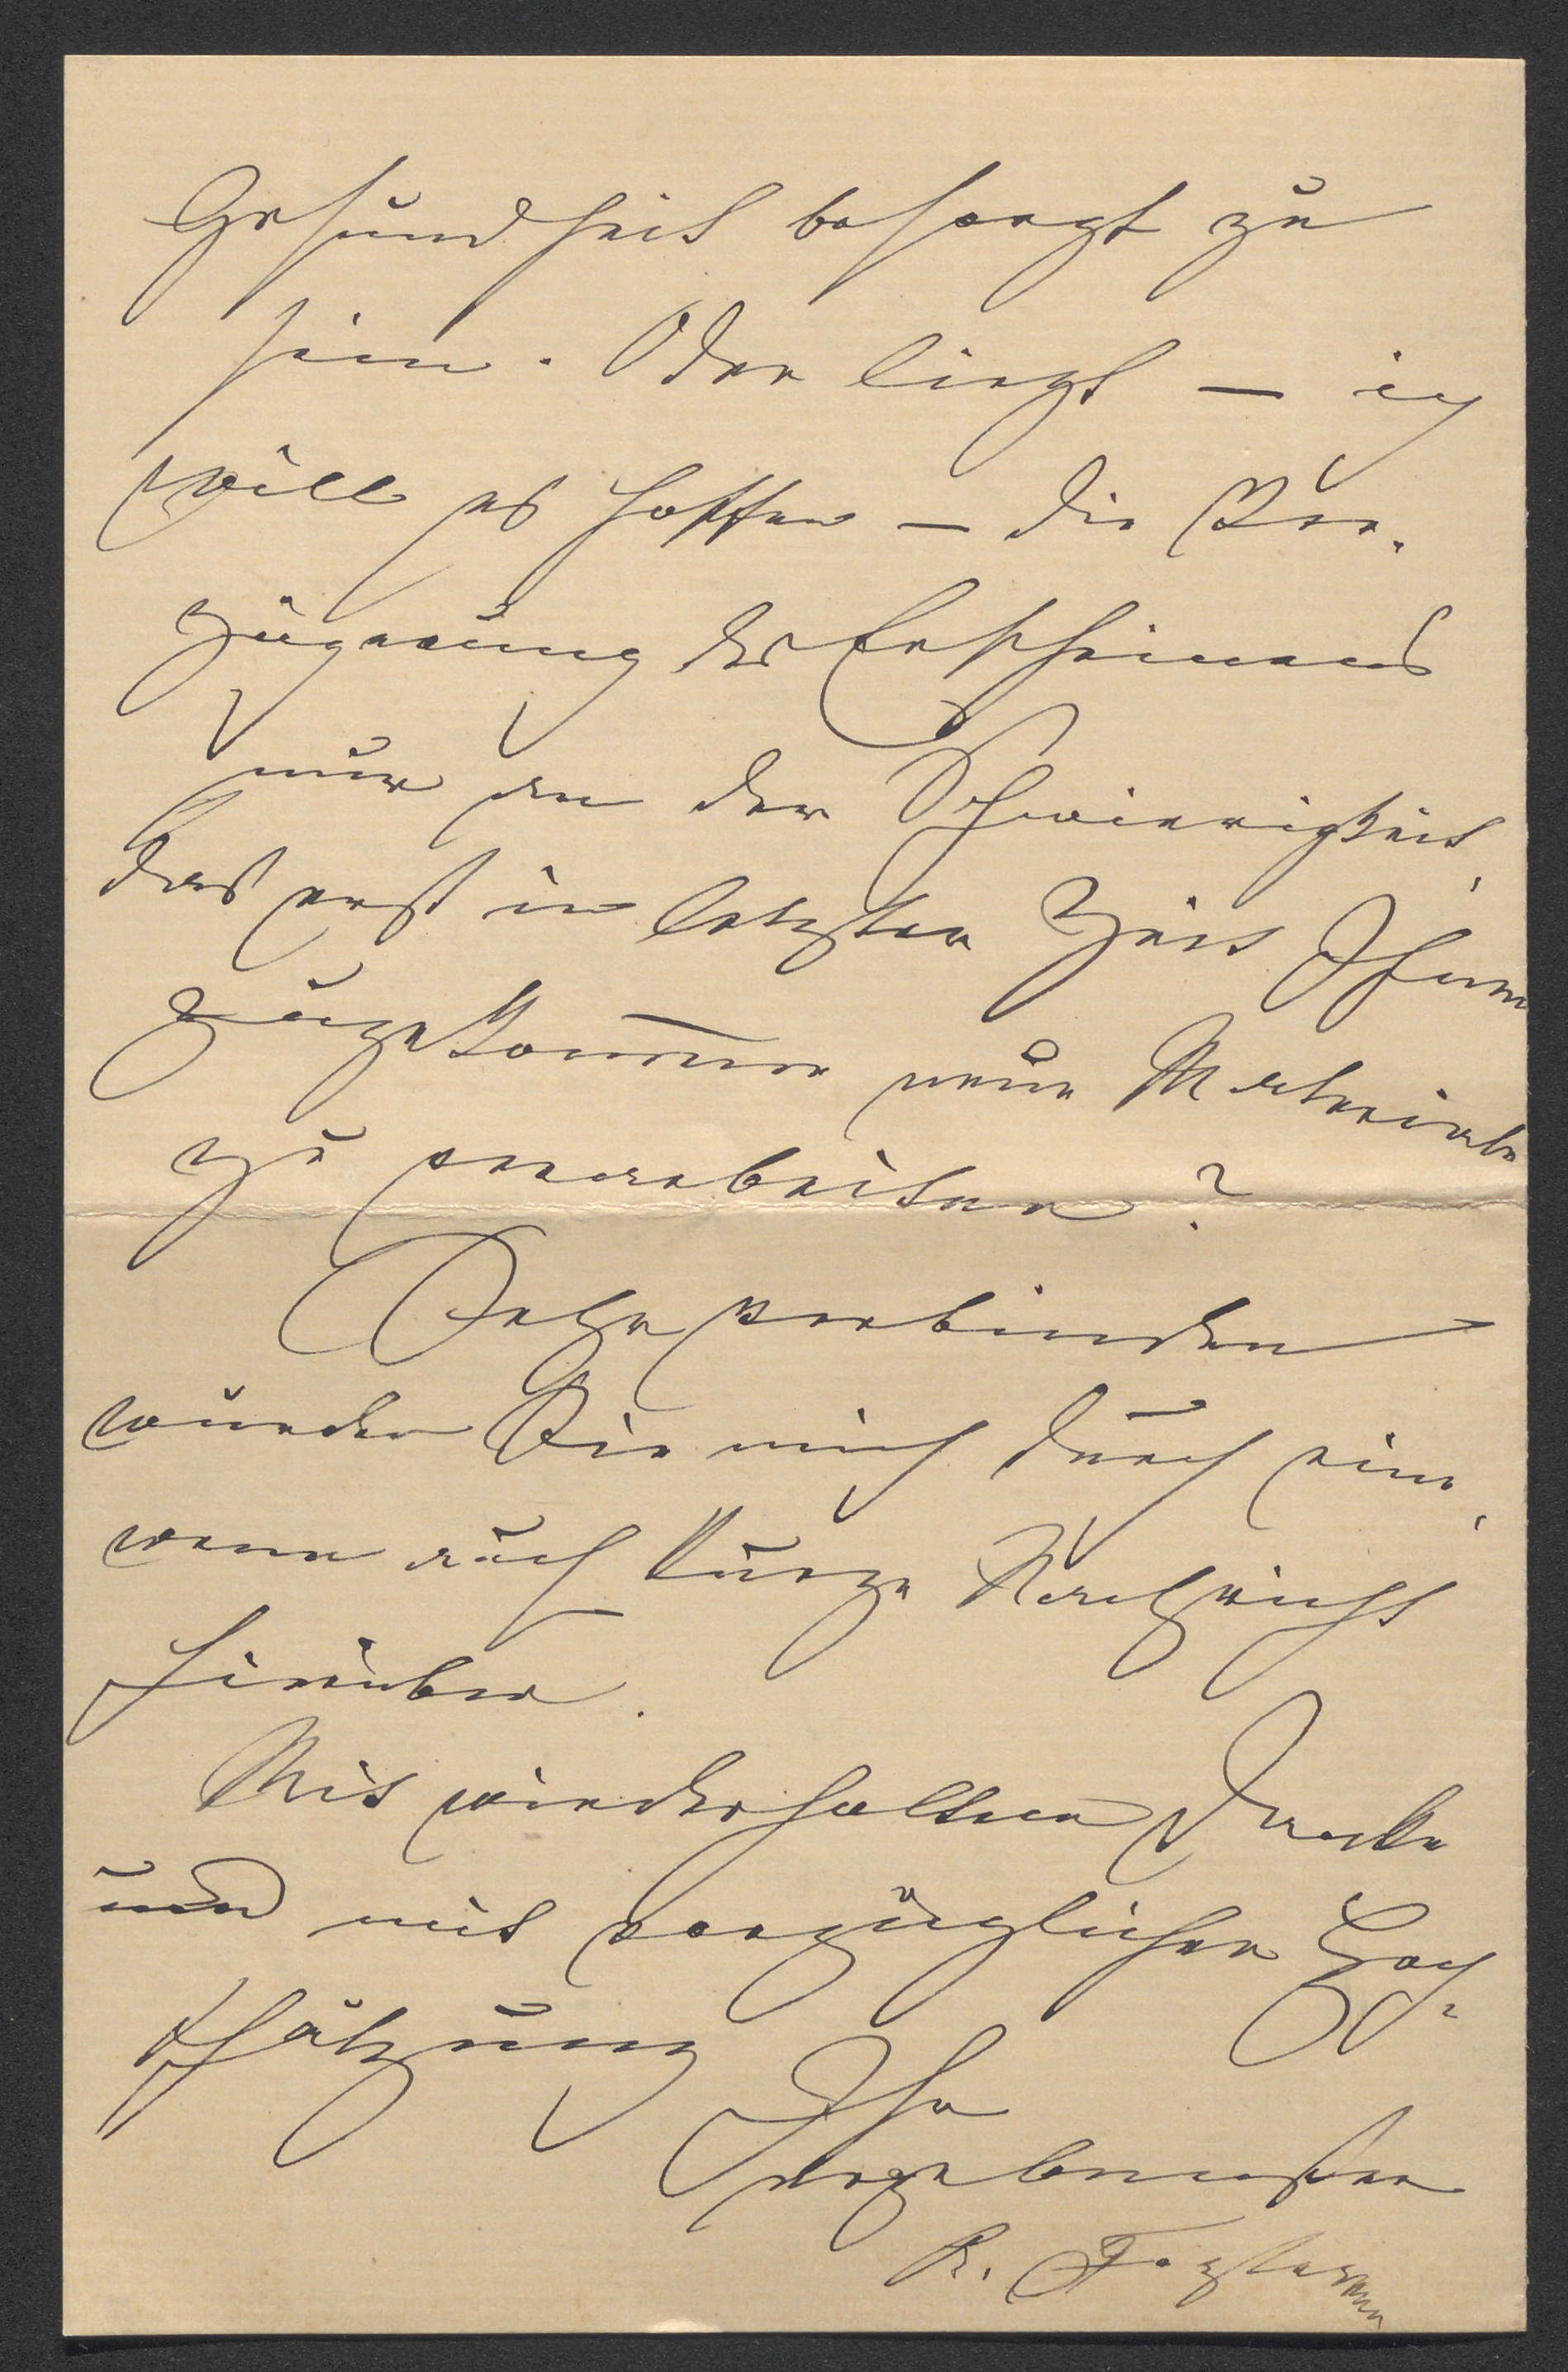 Gesundheit besorgt zu
sein. Oder liegt — ich
will es hoffen — die Ver-
zögerung des Erscheinens
nur an der Schwierigkeit,
das erst in letzter Zeit Ihnen
zugekom̅ene neue Materiale
zu verarbeiten?
Sehr verbinden
würden Sie mich durch eine,
wenn auch kurze Nachricht
hierüber.
Mit wiederholtem Danke
und mit vorzüglicher Hoch-
schätzung
Ihr
ergebenster
R.